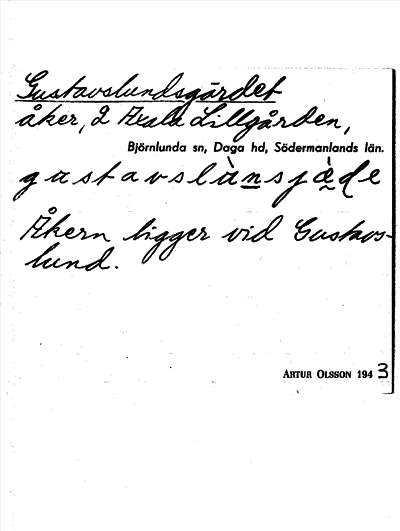 Gustavslundsgärdet
åker, 2 Axala Lillgården,
Björnlunda sn, Daga hd, Södermanlands län.
gustavslànsjæ̀de
Åkern ligger vid Gustavs-
lund.
ARTUR OLSSON 1943